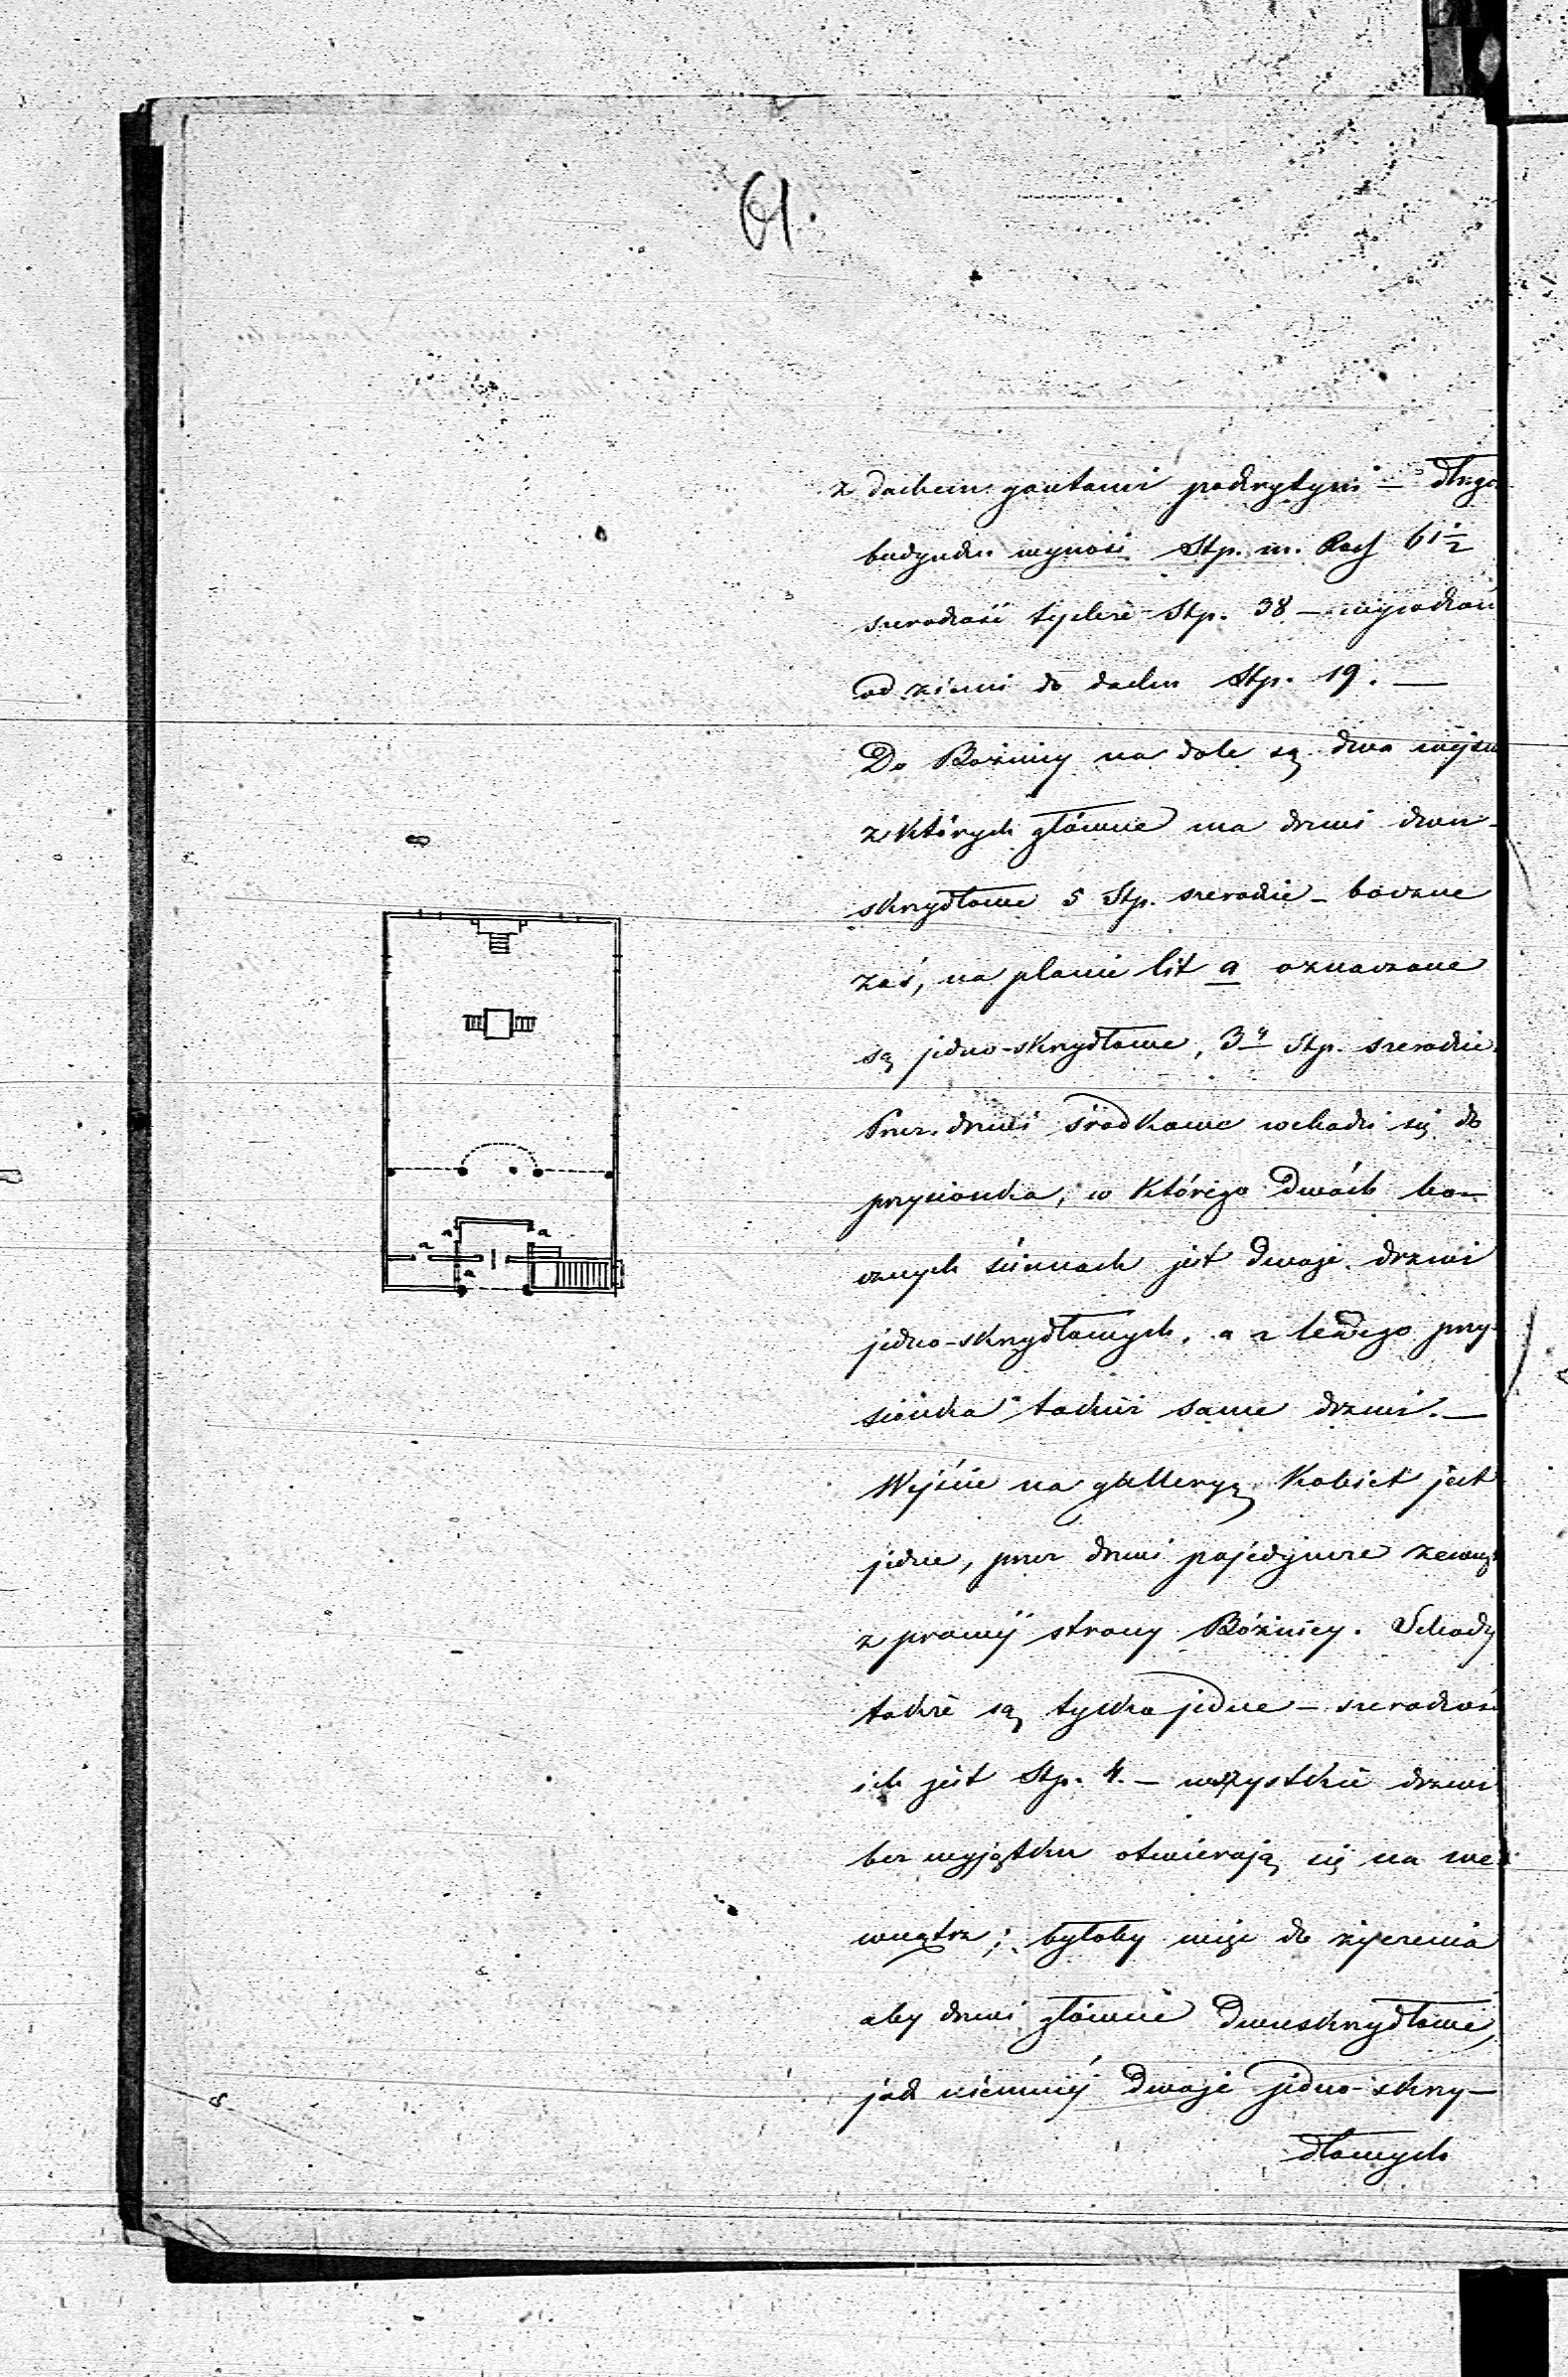 61.
z dachem gontami pokrytym – długo
budynku wynosi Stp. m. Ross 61 1/2
szerokość tychże Stp. 38 – wysokość
od ziemi do dachu Stp. 19. —
Do Bożnicy na dole są dwa wejśc
z których główne ma drzwi dwu-
skrzydłowe 5 Stp. szerokie – boczne
zaś, na planie lit a oznaczone
są jedno-skrzydłowe, 3 Stp. szerokie.
Przez drzwi środkowe wchodzi się do
przysionka, w którego dwóch bo–
cznych ścianach jest dwoje drzwi
jedno-skrzydłowych, a z lewego przy-
sionka takież same drzwi. —
Wejście na galleryą Kobiet jest
jedne, przez drzwi pojedyncze zewną
z prawej strony Bóżnicy. Schody
także są tylko jedne – szerokość
ich jest Stp. 4. – wszystkie drzwi
bez wyjątku otwierają się na we-
wnątrz; byłoby więc do życzenia
aby drzwi główne dwuskrzydłowe,
jak niemniej dwoje jedno-skrzy–
dłowych
a
a
a
a